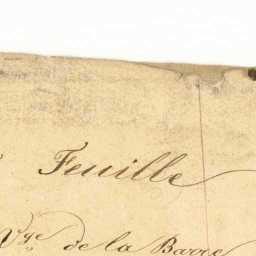 Feuille
Vge de la Barre